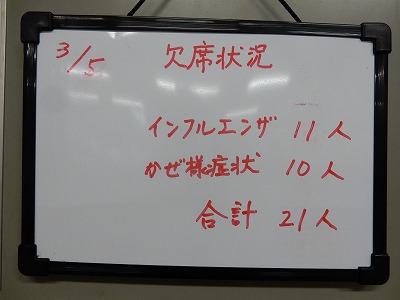 3/5 欠席状況
インフルエンザ 11人
かぜ様症状 10人
合計 21人